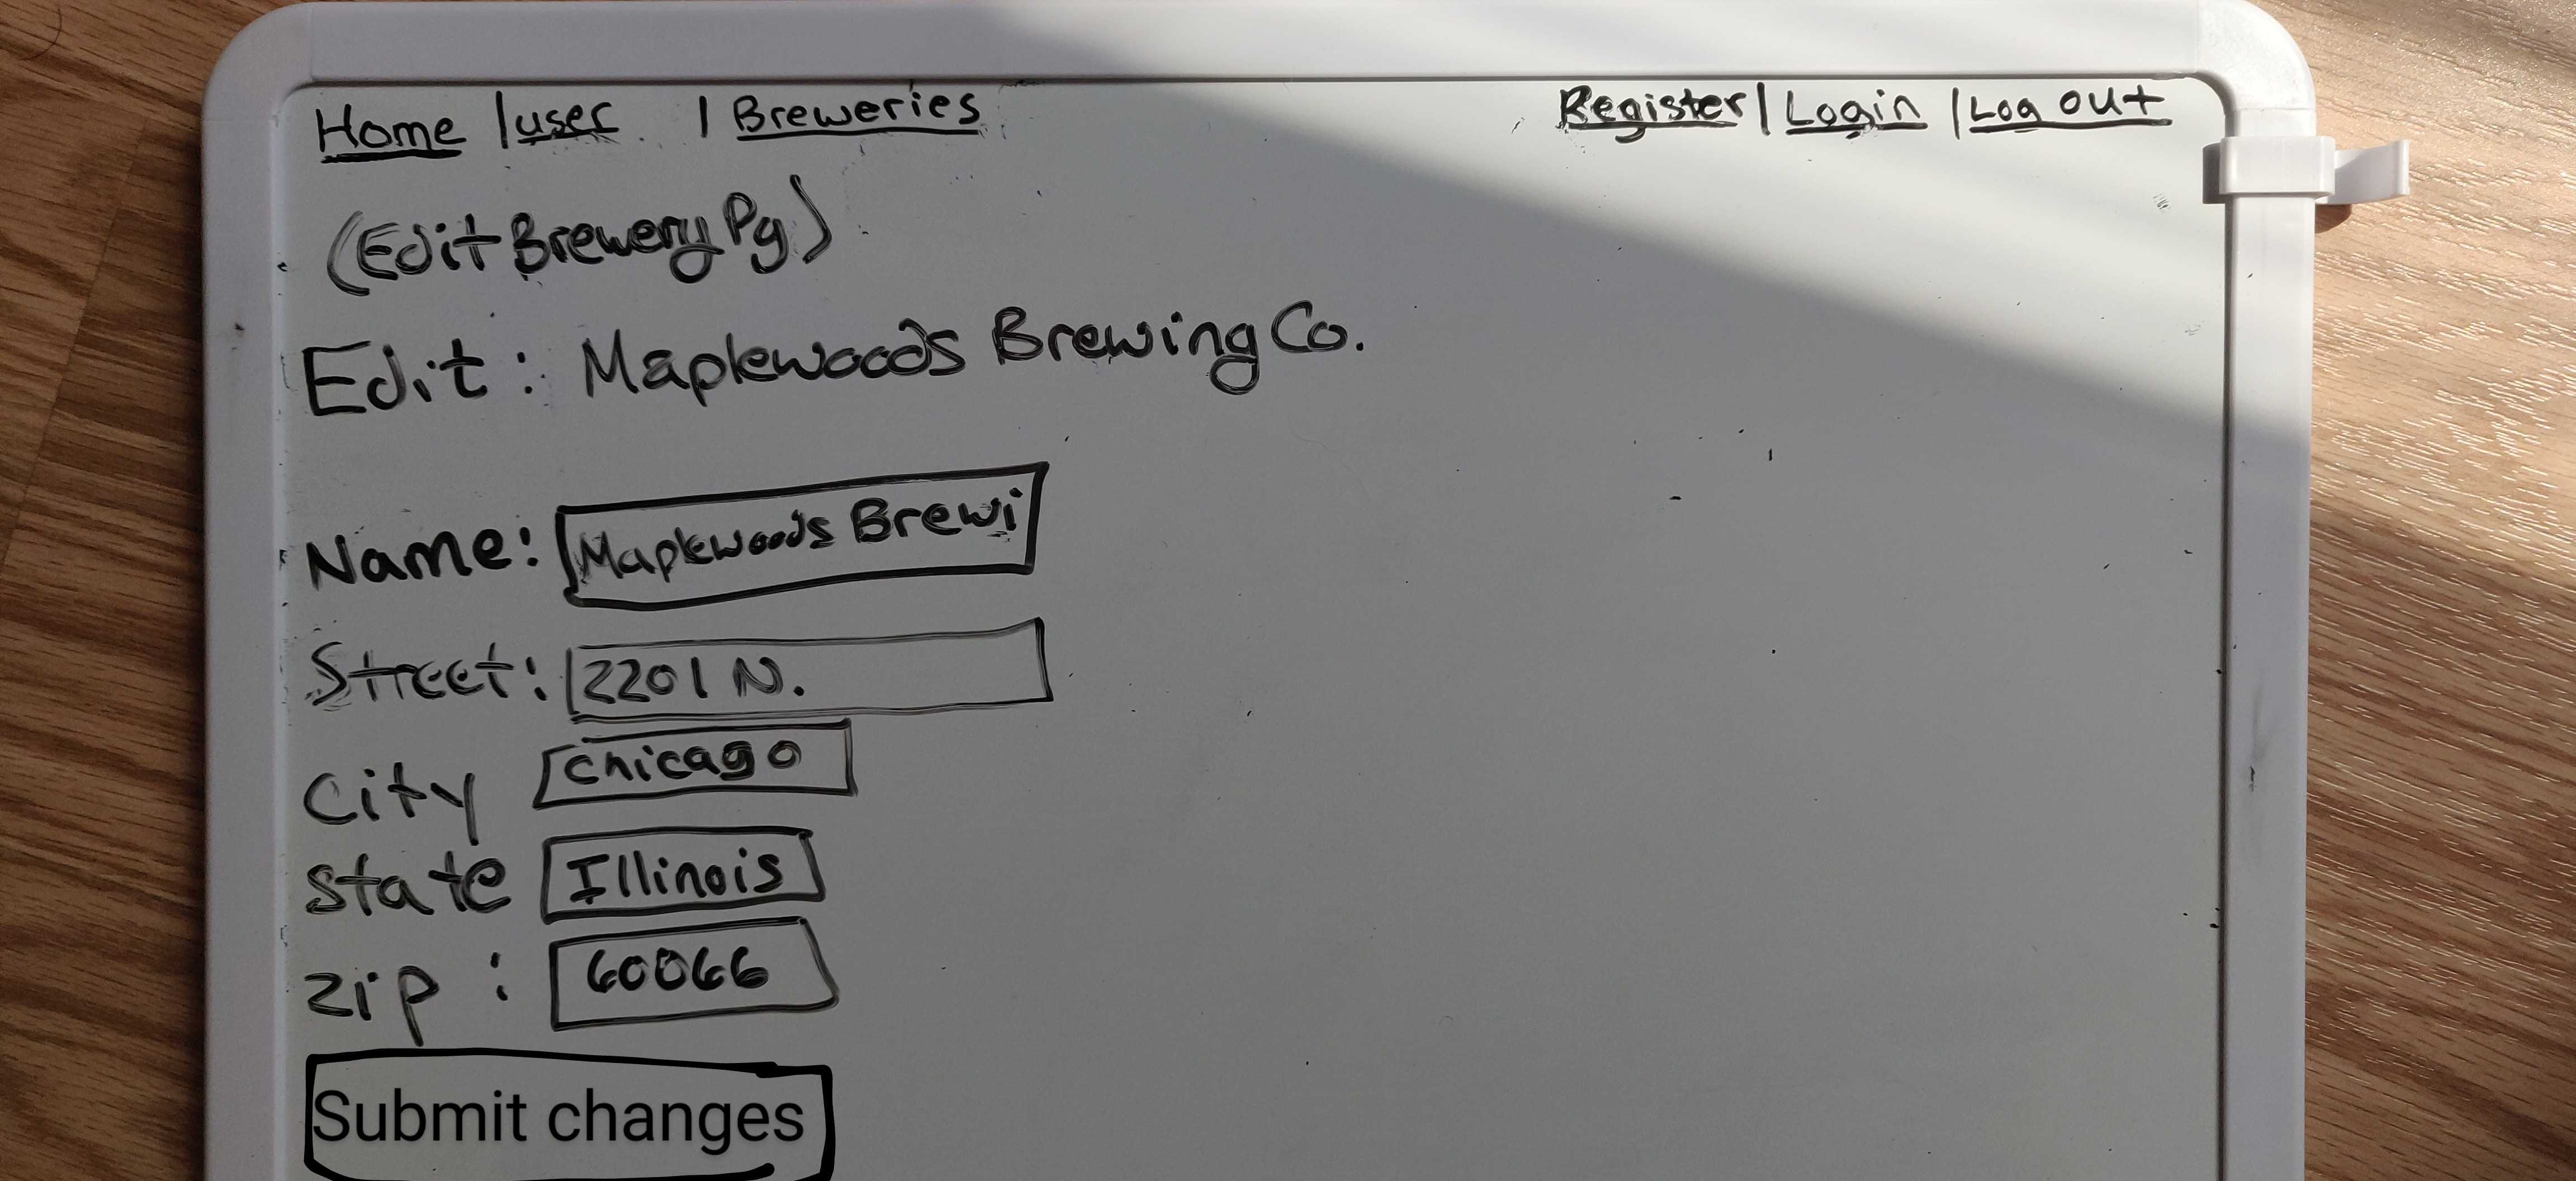 Home | user | Breweries Register | Login | Log out
(Edit Brewery Pg)
Edit: Maplewoods Brewing Co.
Name: Maplewoods Brewi
Street: 2201 N.
City Chicago
State Illinois
zip: 60066
Submit changes